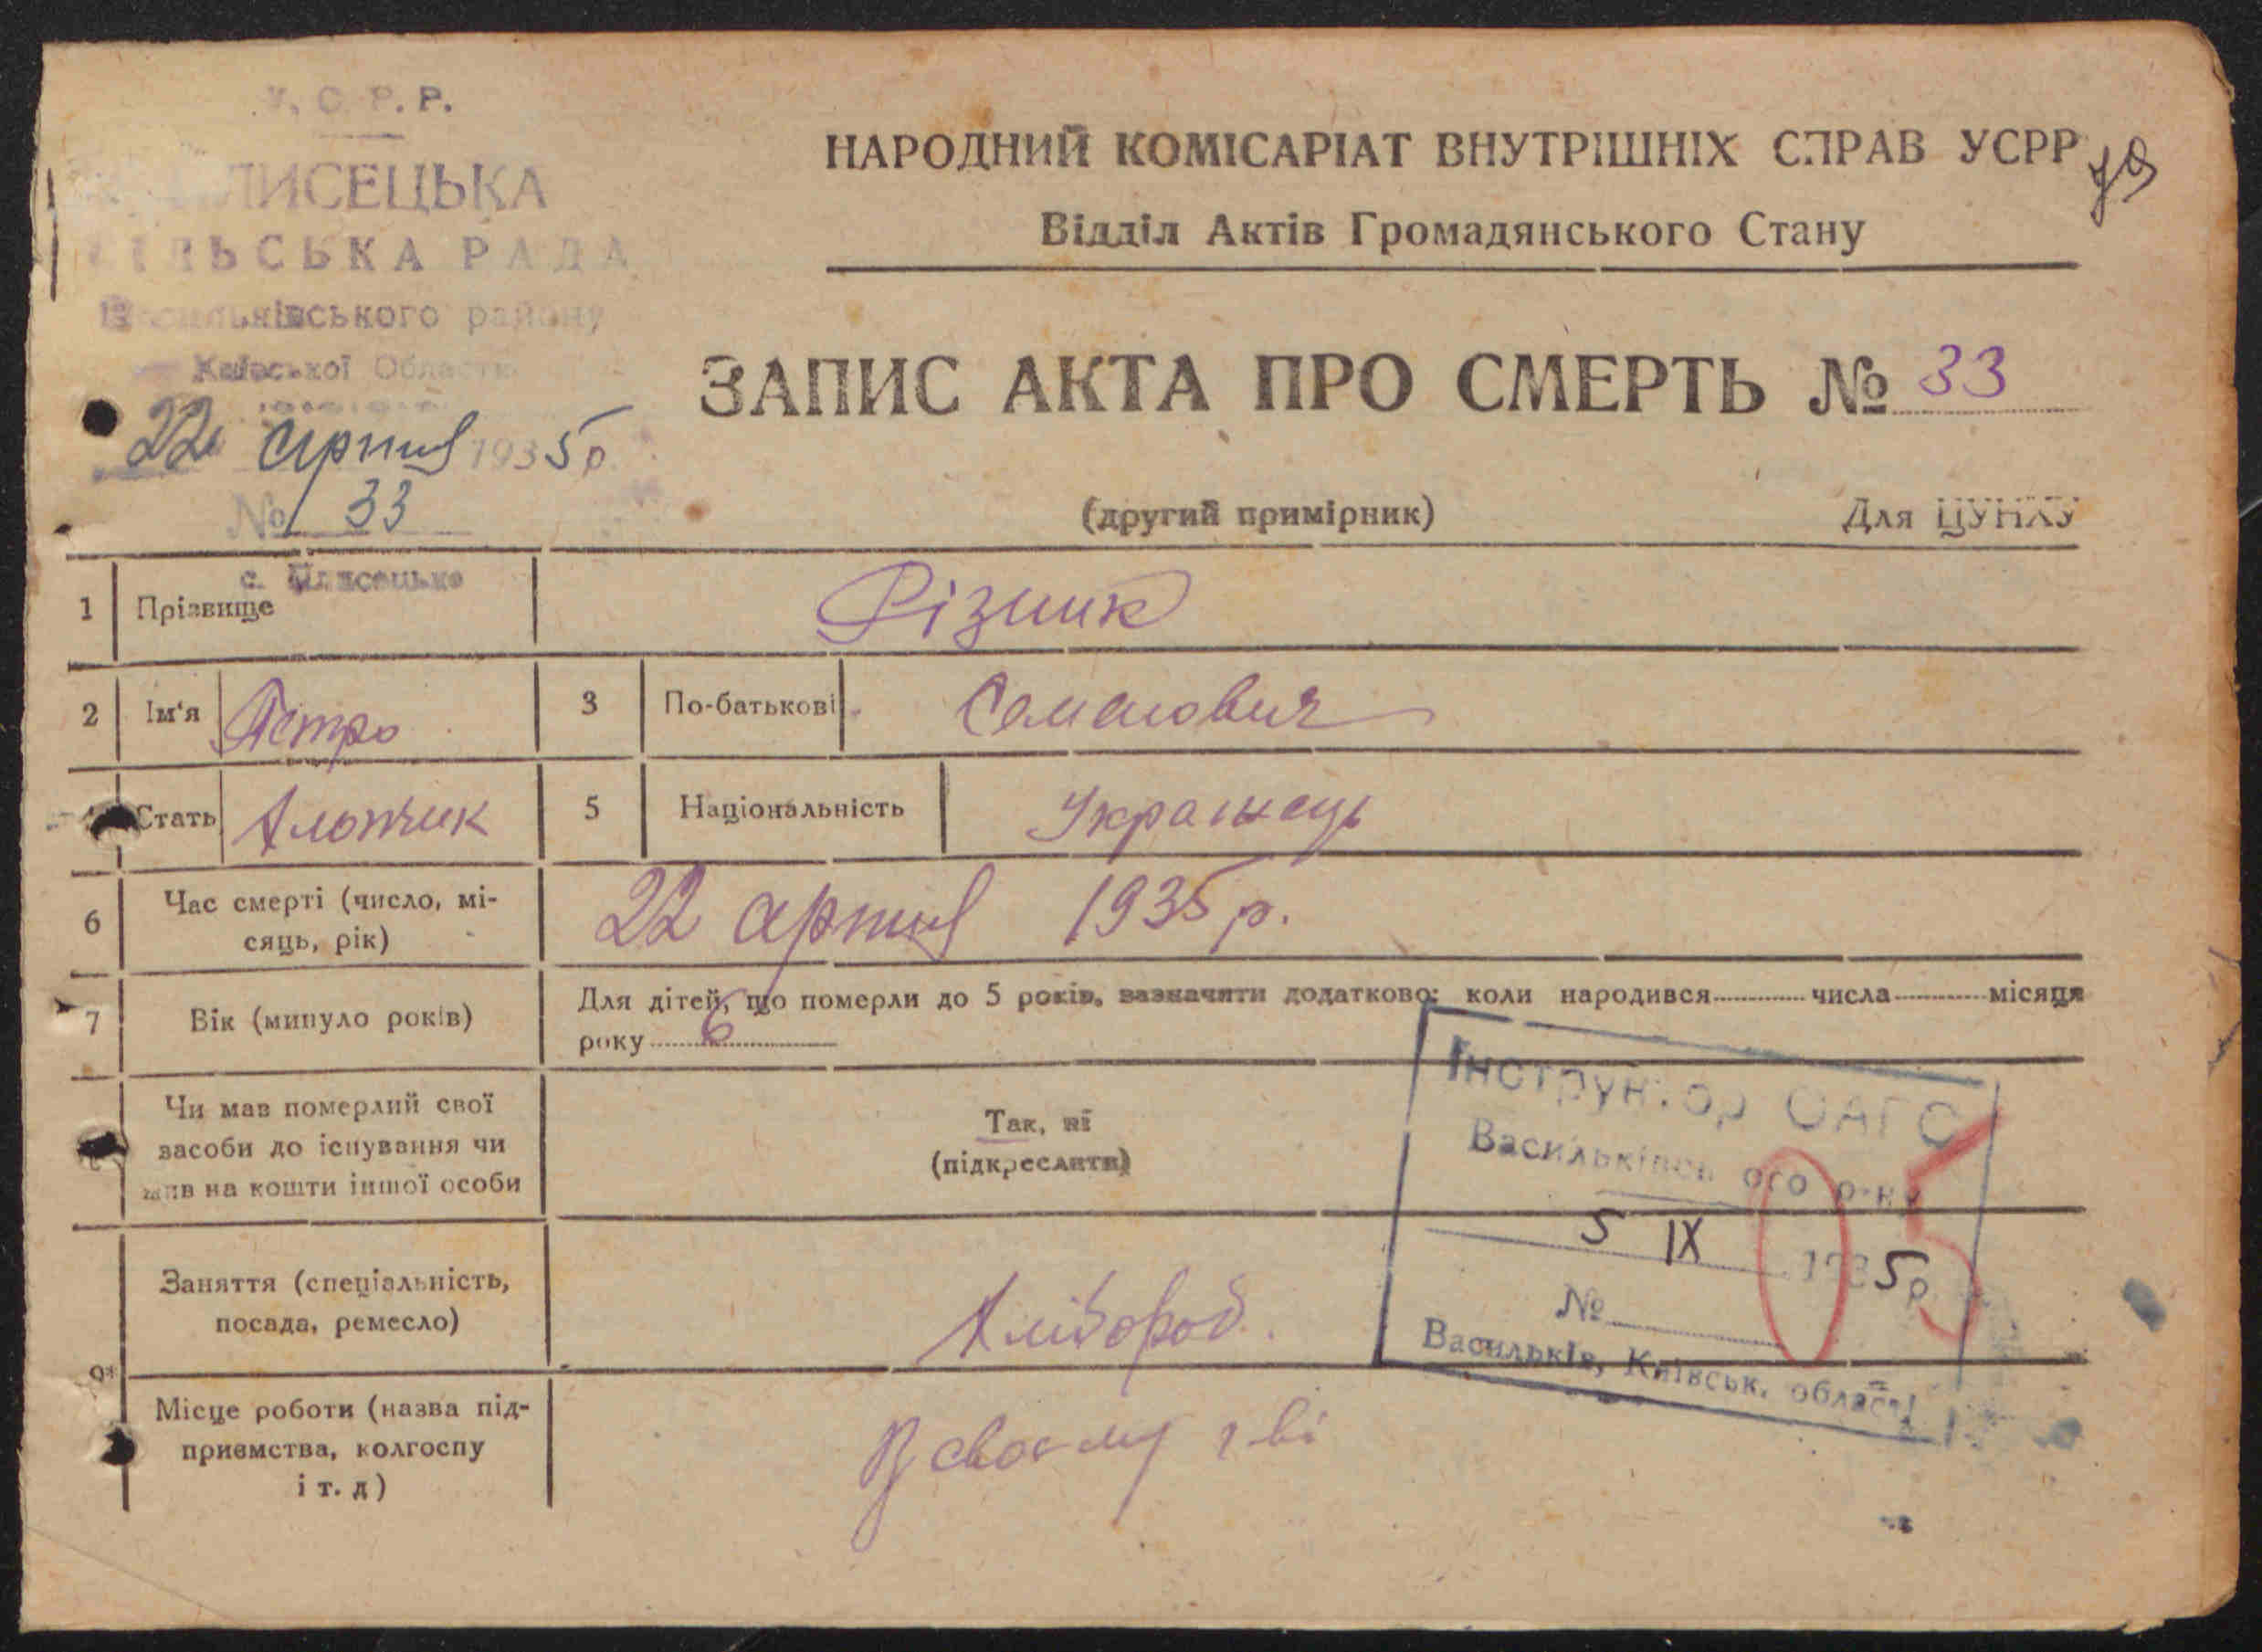 У. С. Р. Р.
ПЛИСЕЦЬКА
СІЛЬСЬКА РАДА
Васильківського району
Київської Области
22 серпня 1935 р
№ 33
с. Плисецьке
НАРОДНИЙ КОМІСАРІАТ ВНУТРІШНІХ СПРАВ УСРР
Відділ Актів Громадянського Стану
ЗАПИС АКТА ПРО СМЕРТЬ № 33
(другий примірник) Для ЦУНХУ
1 Прізвище Різник
2 Ім'я Петро 3 По-батькові Семенович
Стать Хлопчик 5 Національність Українець
6 Час смерті (число, мі-
сяць, рік) 22 серпня 1935 р.
7 Вік (минуло років) Для дітей, що померли до 5 років, зазначити додатково: коли народився числа місяця
року 6
Чи мав померлий свої
засоби до існування чи
жив на кошти іншої особи
Так, ні
(підкреслити)
Заняття (спеціальність,
посада, ремесло) Хлібороб.
9*
Місце роботи (назва під-
приємства, колгоспу
і т. д)
В своєму г-ві
Інструктор ОАГС
Васильківського р-ну
5 IX 1935 р
№
Васильків, Київськ. області